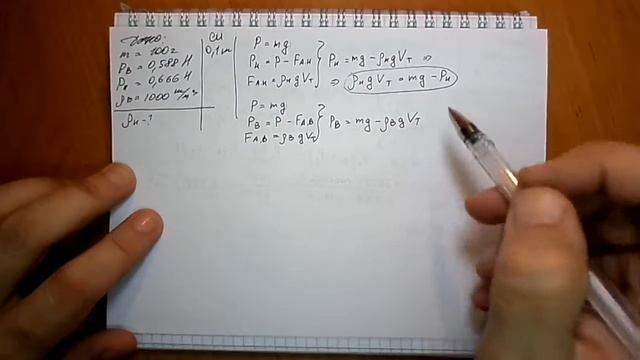 Дано:
m = 100г
P_B = 0,588 Н
P_к = 0,666 Н
ρ_B = 1000 кг/м³
ρ_к - ?
СИ
0,1 кг
P = mg
P_к = P - F_Aк
F_Aк = ρ_к g V_т
P_к = mg - ρ_к g V_т ⇒
⇒ ρ_к g V_т = mg - P_к
P = mg
P_B = P - F_A.B
F_A.B = ρ_B g V_т
P_B = mg - ρ_B g V_т